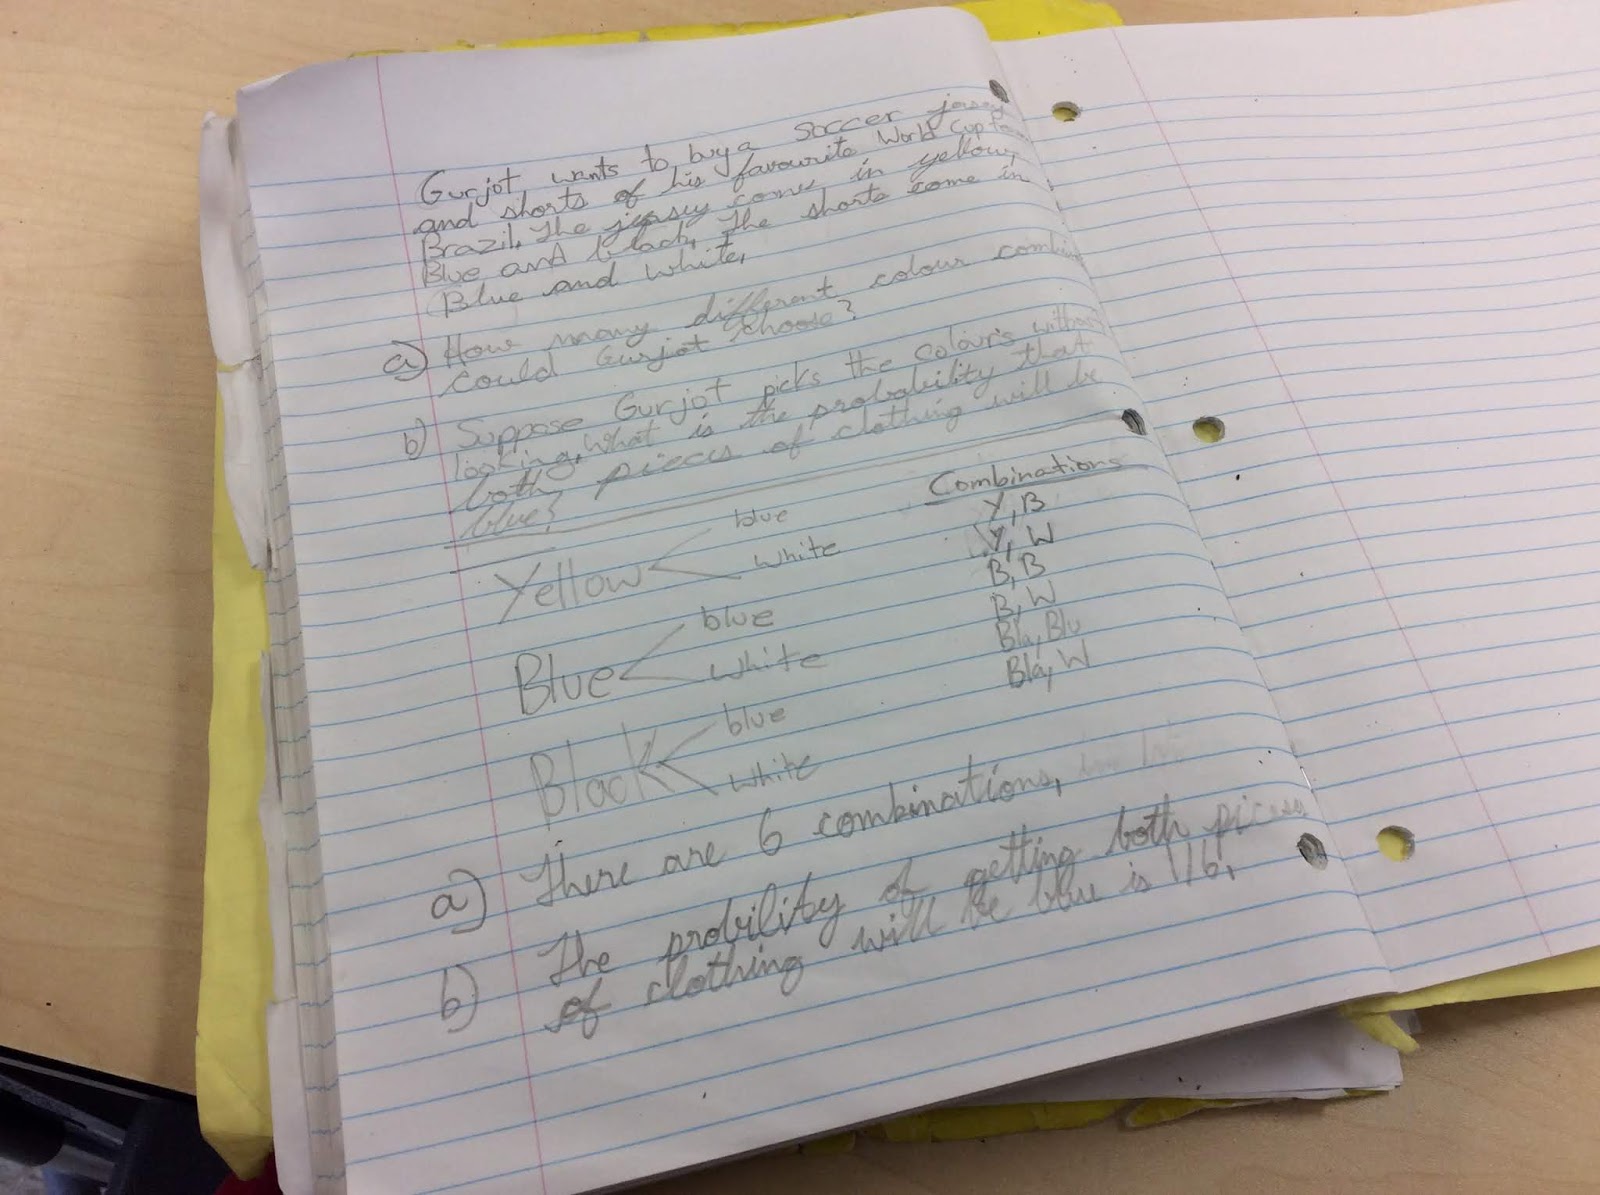 Gurjot wants to buy a soccer jersey
and shorts of his favourite World Cup team
Brazil. The jersey comes in yellow,
Blue and black. The shorts come in
Blue and white.
a) How many different colour combin
could Gurjot choose?
b) Suppose Gurjot picks the colour's without
looking. What is the probability that
both pieces of clothing will be
blue?
Combinations
Yellow blue Y, B
white Y, W
B, B
Blue blue B, W
white Bla, Blu
Bla, W
Black blue
white
a) There are 6 combinations.
b) The probility of getting both picess
of clothing will be blue is 1/6.